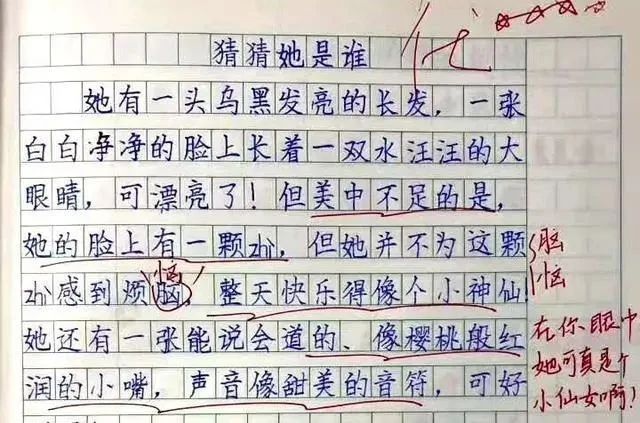 猜猜她是谁 优
她有一头乌黑发亮的长发，一张
白白净净的脸上长着一双水汪汪的大
眼睛，可漂亮了！但美中不足的是，
她的脸上有一颗zhì，但她并不为这颗
zhì感到烦脑，整天快乐得像个小神仙！
恼
她还有一张能说会道的、像樱桃般红
润的小嘴，声音像甜美的音符，可好
脑
恼
在你眼中
她可真是个
小仙女啊！